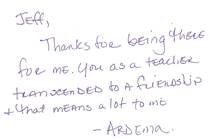 JEFF,
Thanks for being there
for me. You as a teacher
transcended to a friendship
+ that means a lot to me
- ARDENIA